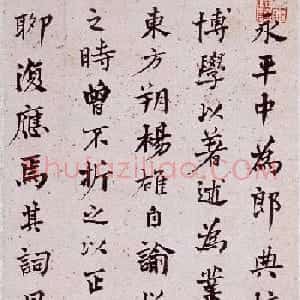 永平中為郎典
博學以著述為業
東方朔楊雄自論以
之時曾不折之以正
聊復應焉其詞曰
shufaziliao.com